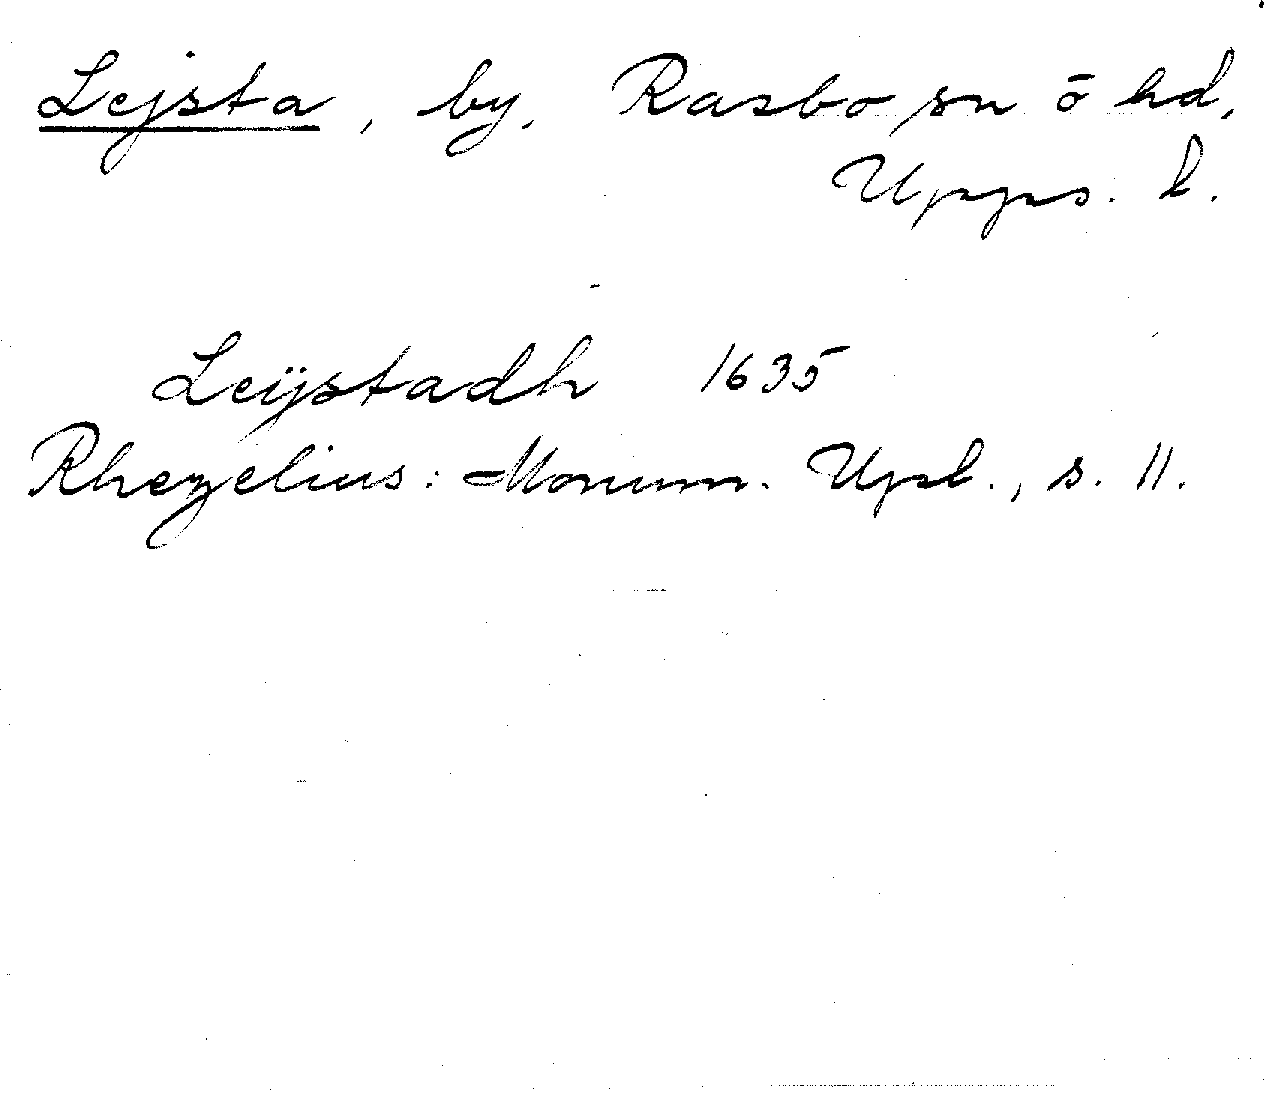 Lejsta, by, Rasbo sn o hd,
Upps. l.
Leijstadh 1635
Rhezelius: Monum. Upl., s. 11.